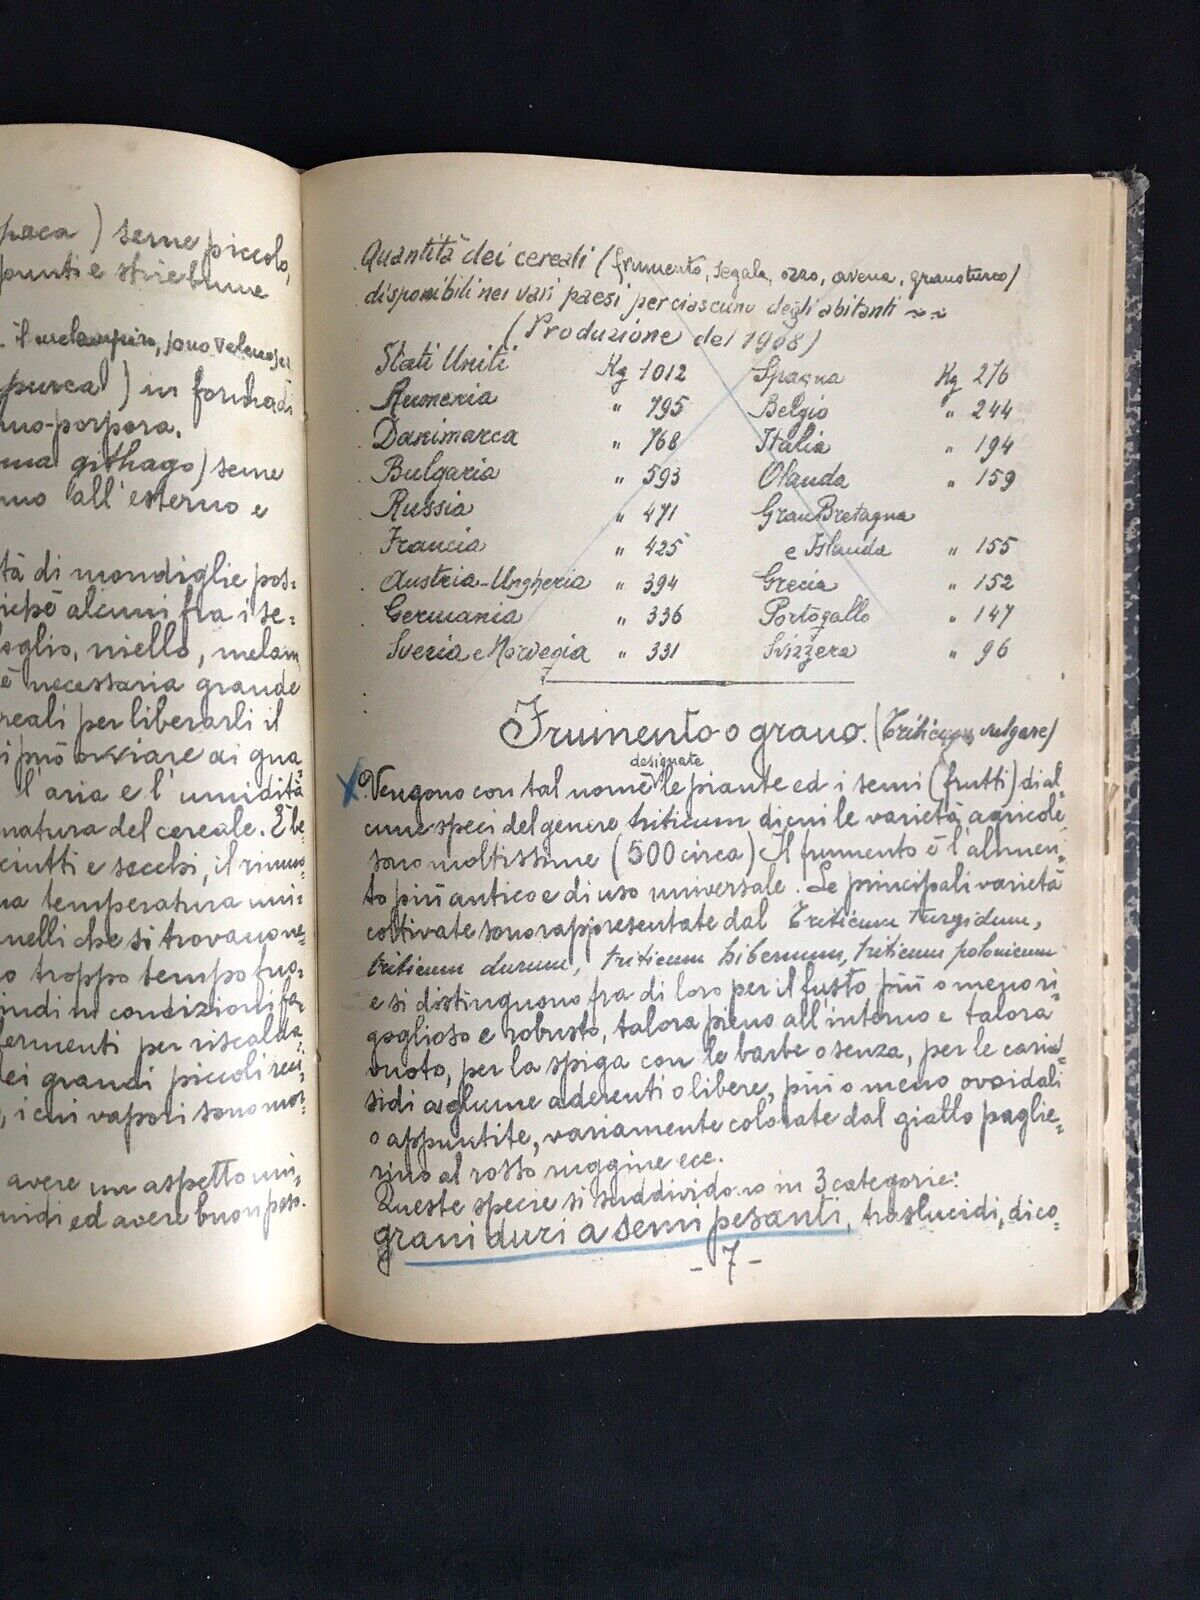 paca) seme piccolo,
punti e strie brune
il melampiro, sono velenosi
purea) in forma di
no-porpora.
ma githago) seme
no all'esterno e
tà di mondiglie pos=
alcuni fra i se=
loglio, niello, melam
è necessaria grande
reali per liberarli il
i può ovviare ai gua=
l'aria e l'umidità
natura del cereale. È be=
ciutti e secchi, il rimuo=
na temperatura uni=
quelli che si trovano ne=
o troppo tempo fuo=
indi in condizioni fa
fermenti per riscalda=
dei grandi piccoli reci=
, i cui vapori sono mor=
avere un aspetto uni=
ed avere buon peso.
Quantità dei cereali (frumento, segala, orzo, avena, granoturco)
disponibili nei vari paesi per ciascuno degli abitanti ~ ~
(Produzione del 1908)
Stati Uniti Kg 1012 Spagna Kg 276
Rumenia " 795 Belgio " 244
Danimarca " 768 Italia " 194
Bulgaria " 593 Olanda " 159
Russia " 471 Gran Bretagna
Francia " 425 e Islanda " 155
Austria-Ungheria " 394 Grecia " 152
Germania " 336 Portogallo " 147
Sveria e Norvegia " 331 Svizzera " 96
Frumento o grano. (Triticum vulgare)
designate
Vengono con tal nome le piante ed i semi (frutti) di al=
cune speci del genere triticum di cui le varietà agricole
sono moltissime (500 circa) Il frumento è l'alimen=
to più antico e di uso universale. Le principali varietà
coltivate sono rappresentate dal Triticum turgidum,
triticum durum, triticum hibernum, triticum polonicum
e si distinguono fra di loro per il fusto più o meno ri=
goglioso e robusto, talora pieno all'interno e talora
vuoto, per la spiga con le barbe o senza, per le cario=
sidi a glume aderenti o libere, più o meno ovoidali
o appuntite, variamente colorate dal giallo paglie=
rino al rosso ruggine ecc.
Queste specie si suddividono in 3 categorie:
grani duri a semi pesanti, traslucidi, dico=
- 7 -